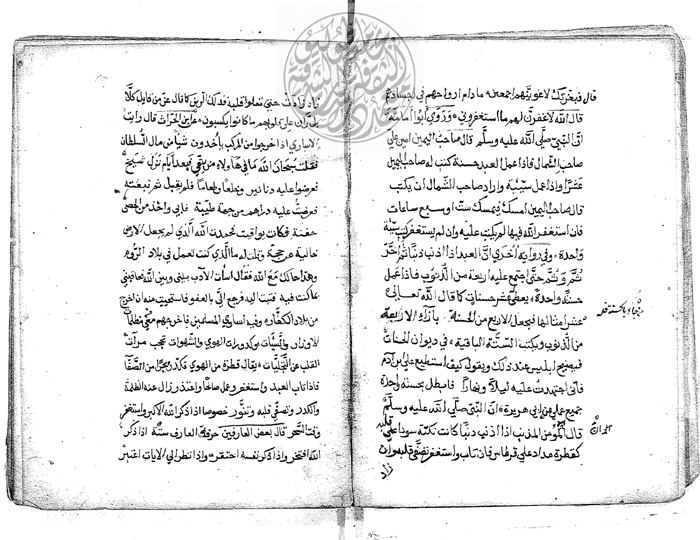 قال فبعزتك لاغوينهم اجمعين ما دام ارواحهم في اجسادهم
قال الله لاغفرن لهم ما استغفروني وروي أبو امامة
ان النبي صلى الله عليه وسلم قال صاحب اليمين امين على
صاحب الشمال فاذا عمل العبد حسنة كتب له صاحب اليمين
عشرا واذا عمل سيئة واراد صاحب الشمال ان يكتب
قال صاحب اليمين امسك فيمسك ست او سبع ساعات
فان استغفر الله فيها لم يكتب عليه وان لم يستغفر كتب سيئة
واحدة وفي رواية اخرى ان العبد اذا اذنب ذنبا ثم آخر
ثم حتى اجتمع عليه اربعة من الذنوب فاذا عمل
حسنة واحدة يعطى عشر حسنات كما قال الله تعالى
عشر امثالها فيجعل الاربع من الحسنة بازاء الاربعة
من الذنوب ويكتب الستة الباقية في ديوان الحسنات
فيصيح ابليس عند ذلك ويقول كيف استطيع على ابن آدم
فاني اجتهدت عليه ليلا ونهارا فابطل بحسنة واحدة
جميع عملي عن ابي هريرة ان النبي صلى الله عليه وسلم
قال المؤمن المذنب اذا اذنب ذنبا كانت نكتة سوداء على قلبه
كقطرة مداد على قرطاس فان تاب واستغفر تصفى قلبه وان
زاد
زاد زادت حتى تعلوا قلبه فذلك الرين كما قال عز من قايل كلا
بل ران على قلوبهم ما كانوا يكسبون قال رايت
الانباري اذا خرجوا من المركب ياخذون شيأ من مال السلطان
فقلت سبحان الله ما في هاولاء من يتقي فبعد ايام نزل شيخ
فعرضوا عليه دنانير وطعاما فلم يقبل ثم تبعته
فعرضت عليه دراهم من جهة طيبة فابى واخذ من الحصى
حفنة فكانت يواقيت فحمدت الله الذي لم يجعل الارض
خالية عن حجة وقلت له ما الذي كنت تعمل في بلاد الروم
وهذا حالك مع الله فقال اسأت الادب بيني وبين الله فعاتبني
ما كنت فيه فتبت اليه فرجع الي بالعفو فاستحييت منه ان اخرج
من بلاد الكفار وفيه اسارى المسلمين فاخرجهم معي
الاوزار والسيئات بكدورات الهوى والشهوات تحجب مرآت
القلب عن التجليات يقال قطرة من الهوى تكدر بحرا من الصفا
فاذا تاب العبد واستغفر وعمل صالحا واعتذر زال عنه الظلمة
والكدر وتصفى قلبه وتنور خصوصا اذا ذكر الله الاكبر واستغفر
وقت السحر قال بعض العارفين حرفة العارف ستة اذا ذكر
الله افتخر واذا ذكر نفسه احتقر واذا نظر الى الايات اعتبر